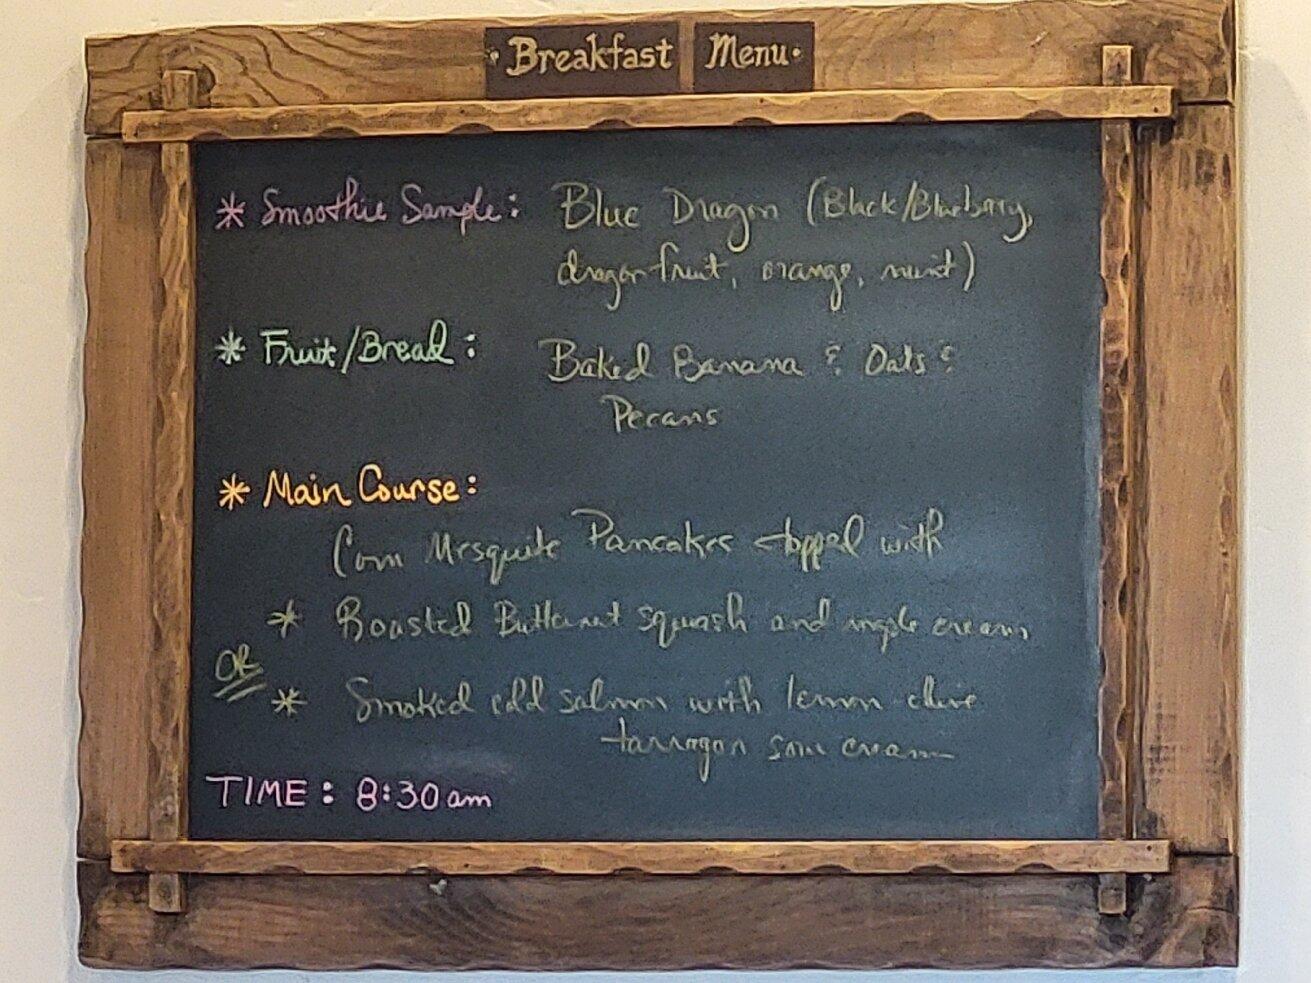 Breakfast Menu
* Smoothie Sample: Blue Dragon (Black/Blueberry,
dragonfruit, orange, mint)
* Fruit/Bread: Baked Banana & Oats &
Pecans
* Main Course:
Corn Mesquite Pancakes topped with
* Roasted Butternut squash and maple cream
OR
* Smoked cold salmon with lemon chive
tarragon sour cream
TIME: 8:30am